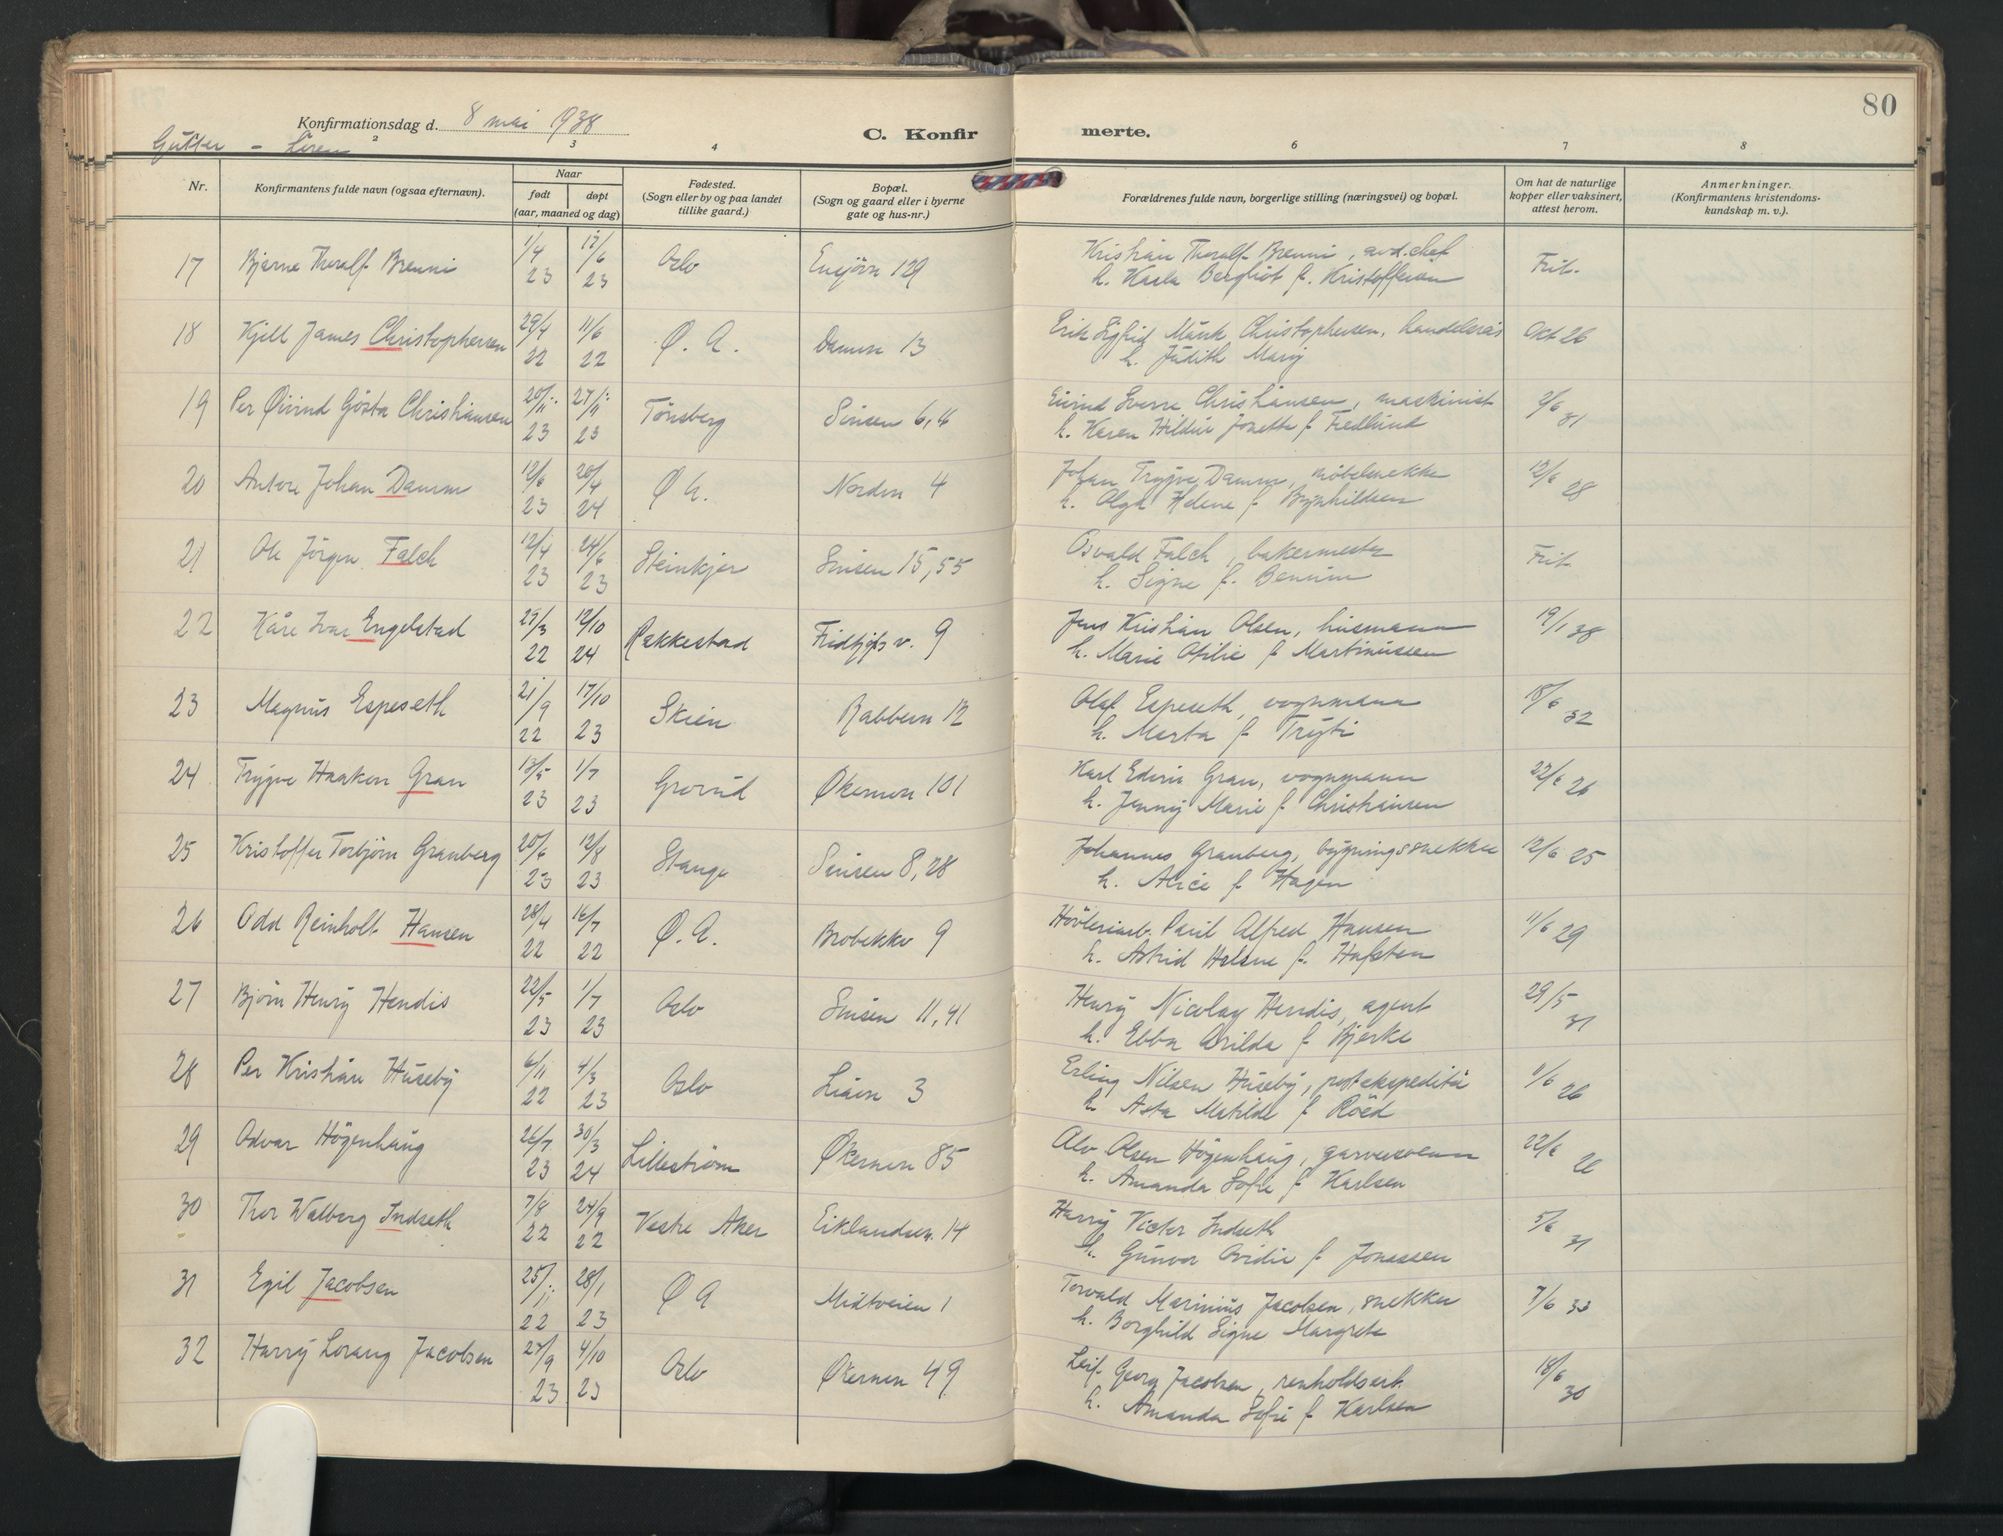 80
Konfirmationsdag d. 8 mai 1938
C. Konfirmerte.
Gutter - Løren
2 3 4 6 7 8
Nr. Konfirmantens fulde navn (ogsaa efternavn). Naar født døpt (aar, maaned og dag) Fødested. (Sogn eller by og paa landet tillike gaard.) Bopæl. (Sogn og gaard eller i byerne gate og hus-nr.) Forældrenes fulde navn, borgerlige stilling (næringsvei) og bopæl. Om hat de naturlige kopper eller vaksinert, attest herom. Anmerkninger. (Konfirmantens kristendomskundskap m. v.).
17 Bjarne Thoralf Brenni 1/4 23 17/6 23 Oslo Ensjøvn 129 Kristian Thoralf Brenni, avd.chef Frit.
h. Karla Bergliot f. Kristoffersen
18 Kjell James Christophersen 29/4 22 11/6 22 Ø. A. Damvn 13 Erik Sigfrid Munk Christophersen, handelsreis Okt 26
h. Judith Mary
19 Per Øivind Gösta Christiansen 20/11 23 27/11 23 Tönsberg Sinsen 6,4 Eivind Sverre Christiansen, maskinist 2/6 31
h. Karen Hildur Jonette f. Fredlund
20 Antore Johan Damm 12/6 23 20/4 24 Ø A. Nordvn 4 Johan Trygve Damm, möbelsnekke 12/6 28
h. Olga Helene f. Brynhildsen
21 Ole Jörgen Falch 12/4 23 24/6 23 Steinkjer Sinsen 15,55 Osvald Falch, bakermester Frit.
h. Signe f. Benum
22 Kåre Ivar Engelstad 29/3 22 12/10 24 Rakkestad Fridtjofs v. 9 Jens Kristian Olsen, husmann 19/1 38
h. Marie Otilie f. Martinussen
23 Magnus Espeseth 21/9 22 17/10 23 Skien Rabbevn 12 Olaf Espeseth, vognmann 18/6 32
h. Marta f. Tryti
24 Trygve Haakon Gran 13/5 23 1/7 23 Grorud Økernvn 101 Karl Edvin Gran, vognmann 22/6 26
h. Jenny Marie f. Christiansen
25 Kristoffer Torbjørn Granberg 20/6 23 12/8 23 Stange Sinsen 8,28 Johannes Granberg, bygningssnekke 12/6 25
h. Alice f. Hagen
26 Odd Reinholt Hansen 28/4 22 16/7 22 Ø. A. Brobekkv 9 Høvleriarb. Paul Alfred Hansen 11/6 29
h. Astrid Helene f. Hafsten
27 Bjørn Henry Hendis 22/5 23 1/7 23 Oslo Sinsen 11,41 Henry Nicolay Hendis, agent 29/5 31
h. Ebba Arilda f. Bjerke
28 Per Kristian Huseby 6/11 22 4/3 23 Oslo Liavn 3 Erling Nilsen Huseby, postekspeditör 1/6 26
h. Asta Matilde f. Röed
29 Odvar Högenhaug 26/7 23 30/3 24 Lillestrøm Økernvn 85 Alv Olsen Högenhaug, garversvenn 22/6 26
h. Amanda Sofie f. Karlsen
30 Thor Walberg Indseth 7/8 22 24/9 22 Vestre Aker Eiklandsvn. 14 Harry Victor Indseth 5/6 31
h. Gunvor Ovidie f. Jonassen
31 Egil Jacobsen 25/11 22 28/1 23 Ø A Midtveien 1 Torvald Marinius Jacobsen, snekker 7/6 33
h. Borghild Signe Margrete
32 Harry Lorang Jacobsen 27/9 23 4/10 23 Oslo Økernvn 49 Leif Georg Jacobsen, renholdsarb. 18/6 30
h. Amanda Sofie f. Karlsen